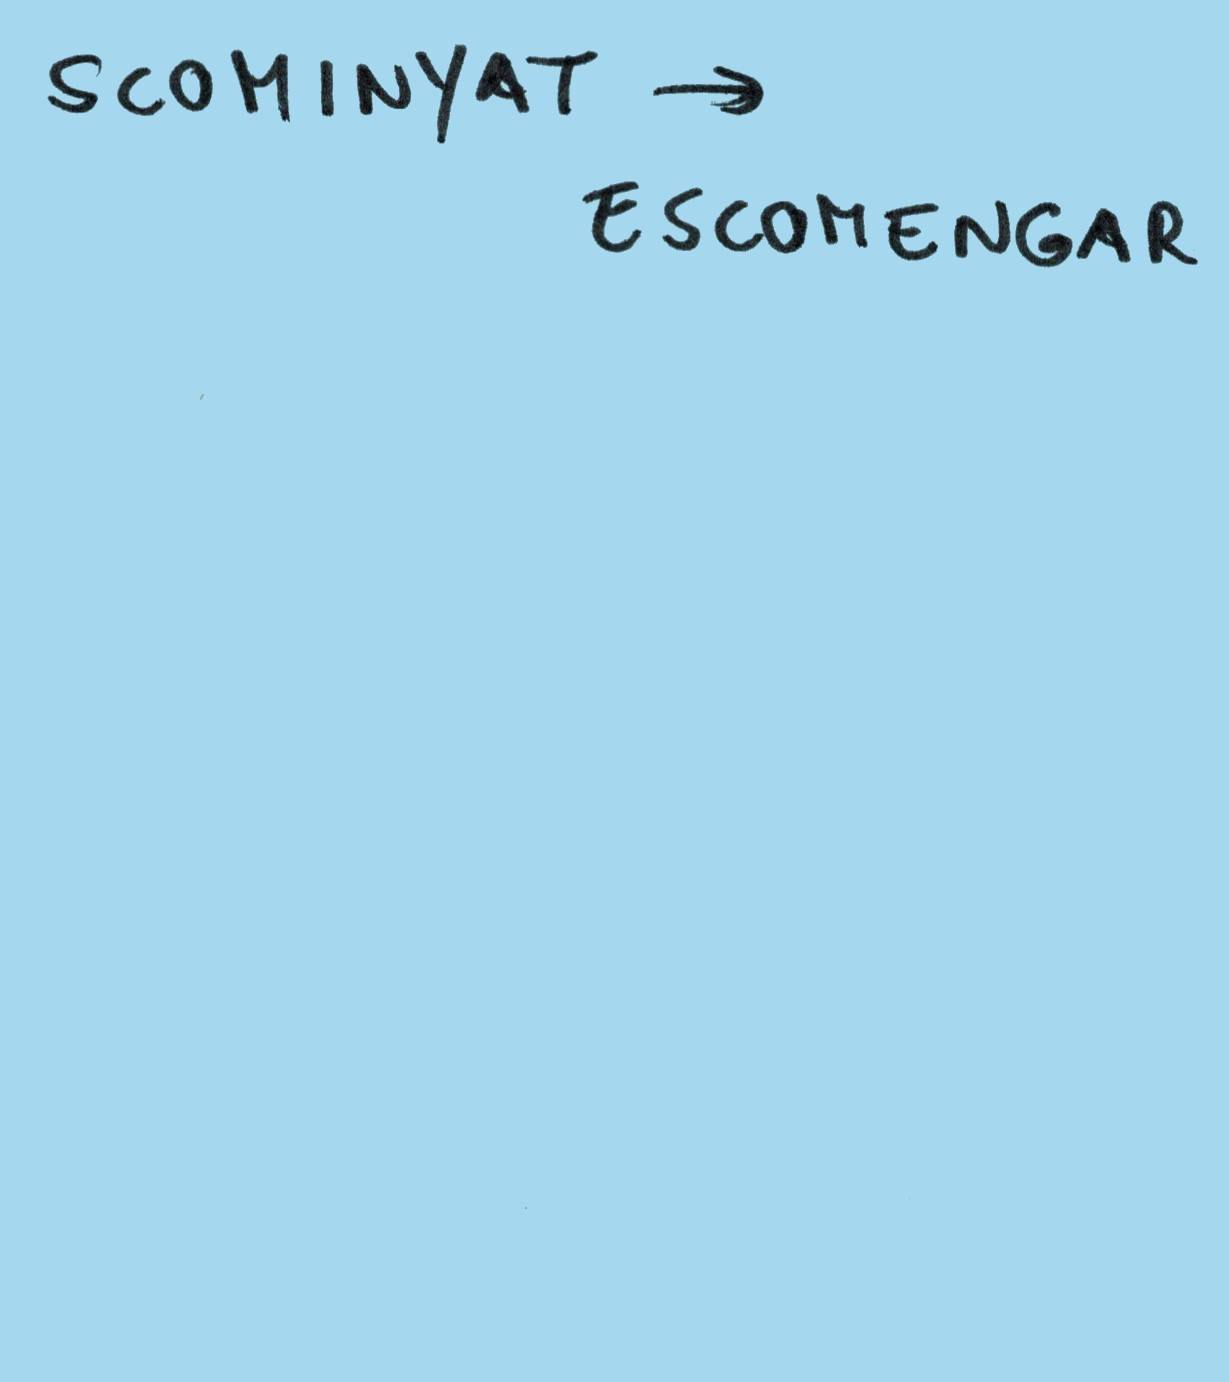 SCOMINYAT →
ESCOMENGAR